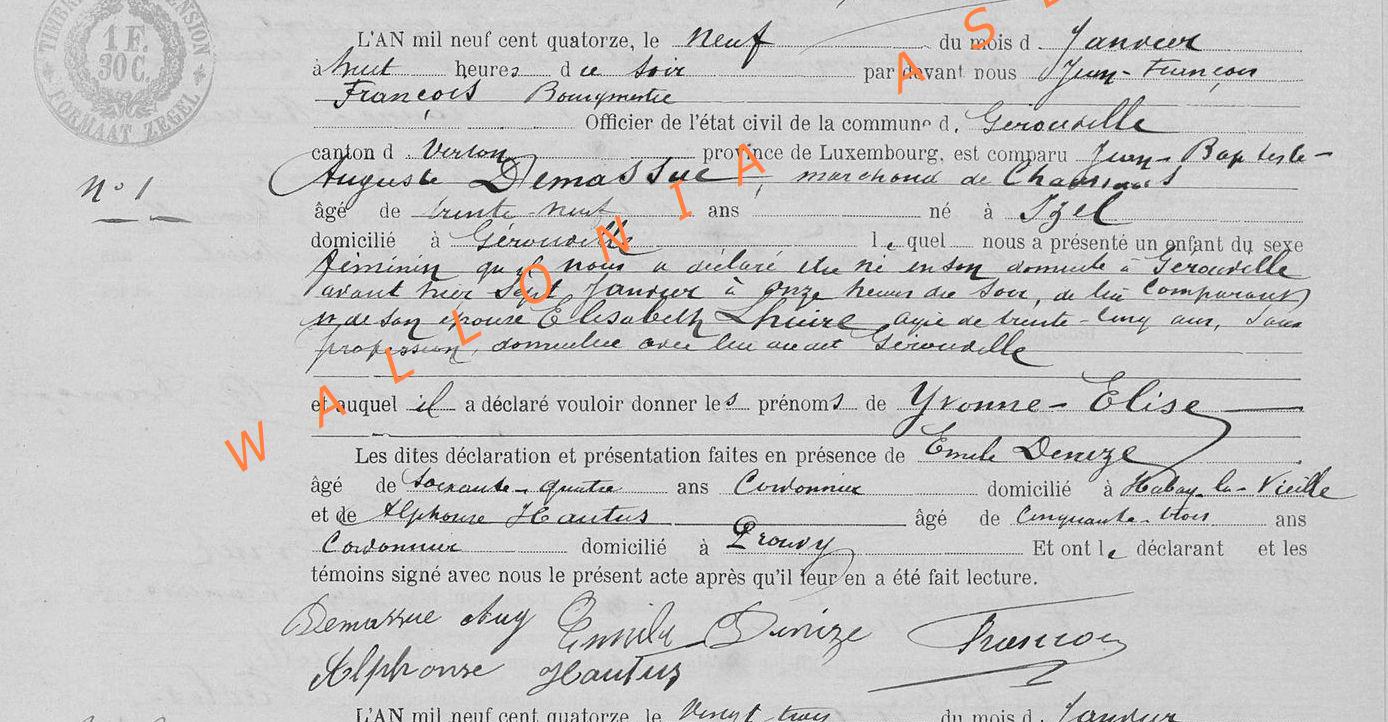 TIMBRE DIMENSION
1 F. 30 C.
FORMAAT ZEGEL
L'AN mil neuf cent quatorze, le neuf du mois d Janvier
à huit heures d u soir par devant nous Jean-François
François Bourgmestre
Officier de l'état civil de la commune d. Gérouville
canton d Virton province de Luxembourg, est comparu Jean-Baptiste-
N° 1
Auguste Demassue, marchand de
âgé de trente neuf ans né à Izel
domicilié à Gérouville le quel nous a présenté un enfant du sexe
féminin qu'il nous a déclaré être né en son domicile à Gérouville
avant hier sept Janvier à onze heures du soir, de lui comparant
et de son épouse Elisabeth Lhuire agée de trente-cinq ans, sans
profession, domiciliée avec lui audit Gérouville
et auquel il a déclaré vouloir donner les prénoms de Yvonne-Elise
Les dites déclaration et présentation faites en présence de Emile Denize
âgé de Soixante-quatre ans Cordonnier domicilié à Habay-la-Vieille
et de Alphonse Hautus âgé de Cinquante-trois ans
Cordonnier domicilié à Prouvy Et ont le déclarant et les
témoins signé avec nous le présent acte après qu'il leur en a été fait lecture.
Demassue Aug Emile Denize François
Alphonse Hautus
L'AN mil neuf cent quatorze, le Vingt trois du mois d Janvier
WALLONIA AS